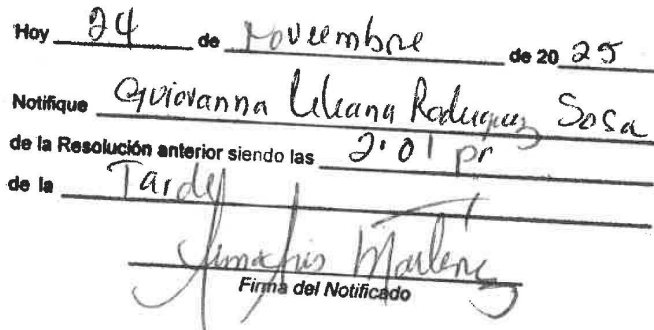 Hoy 24 de Noviembre de 20 25
Notifique Giovanna Liliana Rodriguez Sosa
de la Resolución anterior siendo las 2:01 pm
de la Tarde
Martinez
Firma del Notificado